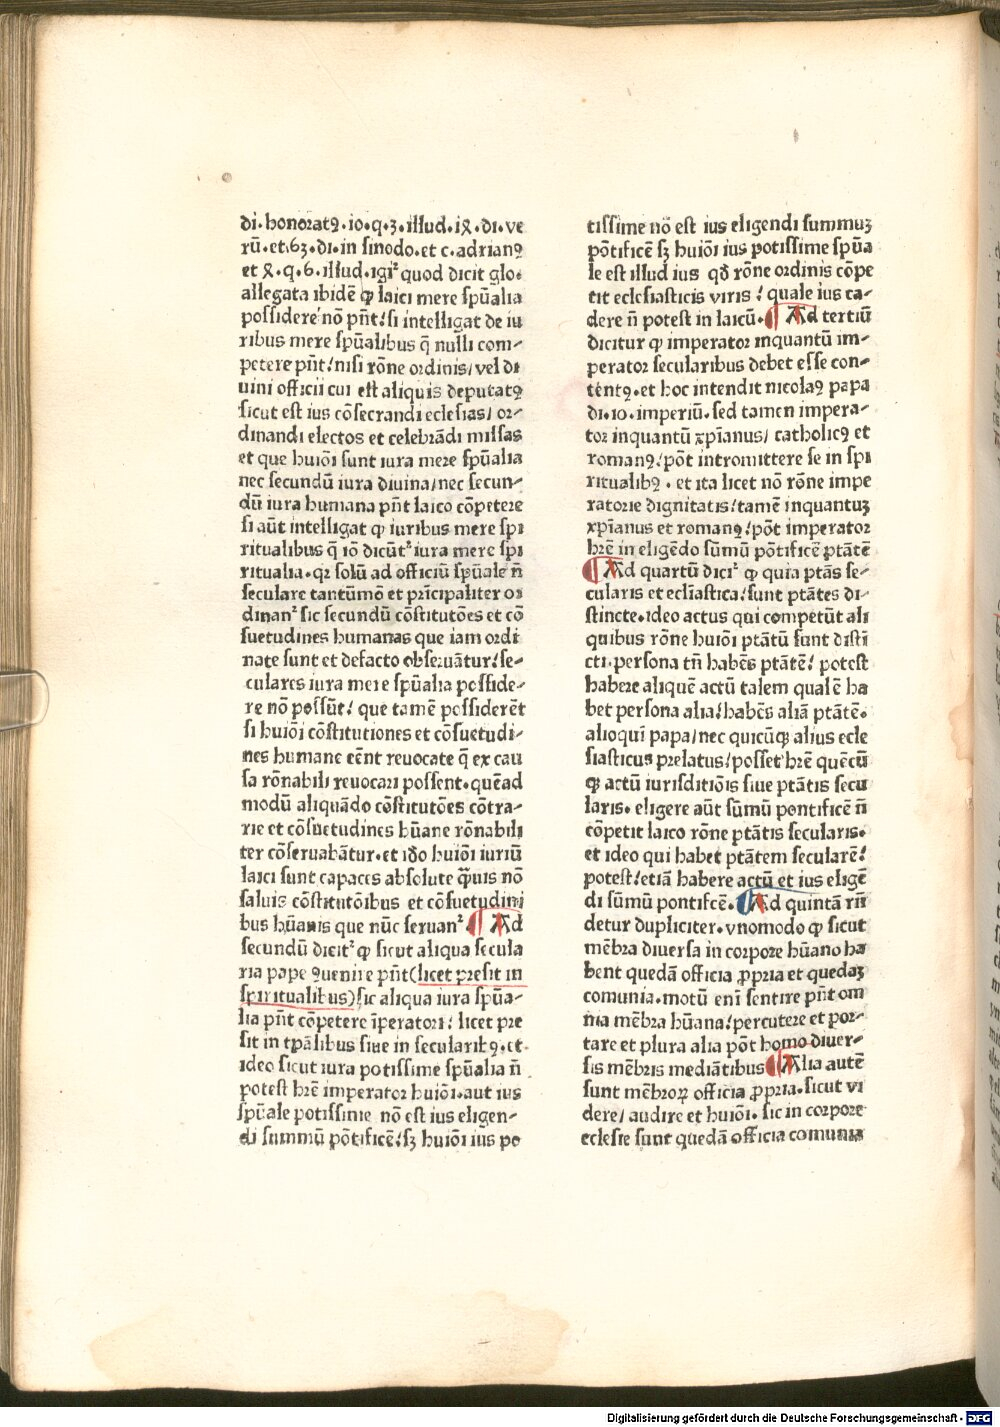 di. honoratꝰ. io. q. 3. illud. iꝝ. di. ve
rū. et. 63. di. in sinodo. et c. adrianꝰ
et ꝝ. q. 6. illud. igiᷣ quod dicit glo.
allegata ibidē ꝙ laici mere spūalia
possidere nō pn̄t! si intelligat de iu
ribus mere spūalibus q̄ nulli com⸗
petere pn̄t! nisi rōne ordinis/ vel di
uini officii cui est aliquis deputatꝰ
sicut est ius cōsecrandi eclesias/ or⸗
dinandi electos et celebrādi missas
et que huiōi sunt iura mere spūalia
nec secundū iura diuina/ nec secun⸗
dū iura humana pn̄t laico cōpetere
si aūt intelligat ꝙ iuribus mere spi
ritualibus q̄ iō dicūtᷣ iura mere spi
ritualia. qꝛ solū ad officiū spūale n̄
seculare tantūmō et prīcipaliter or
dinanᷣ sic secundū cōstitutōes et cō
suetudines humanas que iam ordi
nate sunt et defacto obseruātur! se⸗
culares iura mere spūalia posside⸗
re nō possūt! que tamē possiderēt
si huiōi cōstitutiones et cōsuetudi⸗
nes humane eēnt reuocate q̄ ex cau
sa rōnabili reuocari possent. quēad
modū aliquādo cōstitutōes cōtra⸗
rie et cōsuetudines hūane rōnabili
ter cōseruabātur. et idō huiōi iuriū
laici sunt capaces absolute q̄uis nō
saluis cōstitutōibus et cōsuetudini
bus hūanis que nūc seruanᷣ. ¶ Ad
secundū dicitᷣ ꝙ sicut aliqua secula
ria pape ꝯuenire pn̄t (licet presit in
spiritualibus) sic aliqua iura spūa⸗
lia pn̄t cōpetere īperatori! licet pre
sit in tpālibus siue in secularibꝰ. et
ideo sicut iura potissime spūalia n̄
potest hrē imperator huiōi. aut ius
spūale potissime nō est ius eligen⸗
di summū pōtificē! sꝫ huiōi ius po
tissime nō est ius eligendi summuꝫ
pōtificē sꝫ huiōi ius potissime spūa
le est illud ius qd̄ rōne ordinis cōpe
tit eclesiasticis viris! quale ius ca⸗
dere n̄ potest in laicū. ¶ Ad tertiū
dicitur ꝙ imperator inquantū im⸗
perator secularibus debet esse con⸗
tētꝰ. et hoc intendit nicolaꝰ papa
di. io. imperiū. sed tamen impera⸗
tor inquantū xp̄ianus/ catholicꝰ et
romanꝰ! pōt intromittere se in spi
ritualibꝰ. et ita licet nō rōne impe
ratorie dignitatis! tamē inquantuꝫ
xp̄ianus et romanꝰ! pōt imperator
hrē in eligēdo sūmū pōtificē ptātē
¶ Ad quartū diciᷣ ꝙ quia ptās se⸗
cularis et eclīastica! sunt ptātes di⸗
stincte. ideo actus qui competūt ali
quibus rōne huiōi ptātū sunt distī
cti. persona tn̄ habēs ptātē! potest
habere aliquē actū talem qualē ha
bet persona alia! habēs aliā ptātē.
alioqui papa/ nec quicūqꝫ alius ecle
siasticus prelatus/ posset hrē quēcū
qꝫ actū iurisditiōis siue ptātis secu
laris. eligere aūt sūmū pontificē n̄
cōpetit laico rōne ptātis secularis.
et ideo qui habet ptātem secularē!
potest! etiā habere actū et ius eligē
di sūmū pontifcē. ¶ Ad quintā rn̄
detur dupliciter. vnomodo ꝙ sicut
mēbra diuersa in corpore hūano ha
bent quedā officia ꝓpria et quedaꝫ
comunia. motū enī sentire pn̄t om
nia mēbra hūana! percutere et por⸗
tare et plura alia pōt homo diuer⸗
sis mēbris mediātibus ¶ Alia autē
sunt mēbroꝝ officia ꝓpria. sicut vi
dere/ audire et huiōi. sic in corpore
eclesie sunt quedā officia comunia
Digitalisierung gefördert durch die Deutsche Forschungsgemeinschaft - DFG